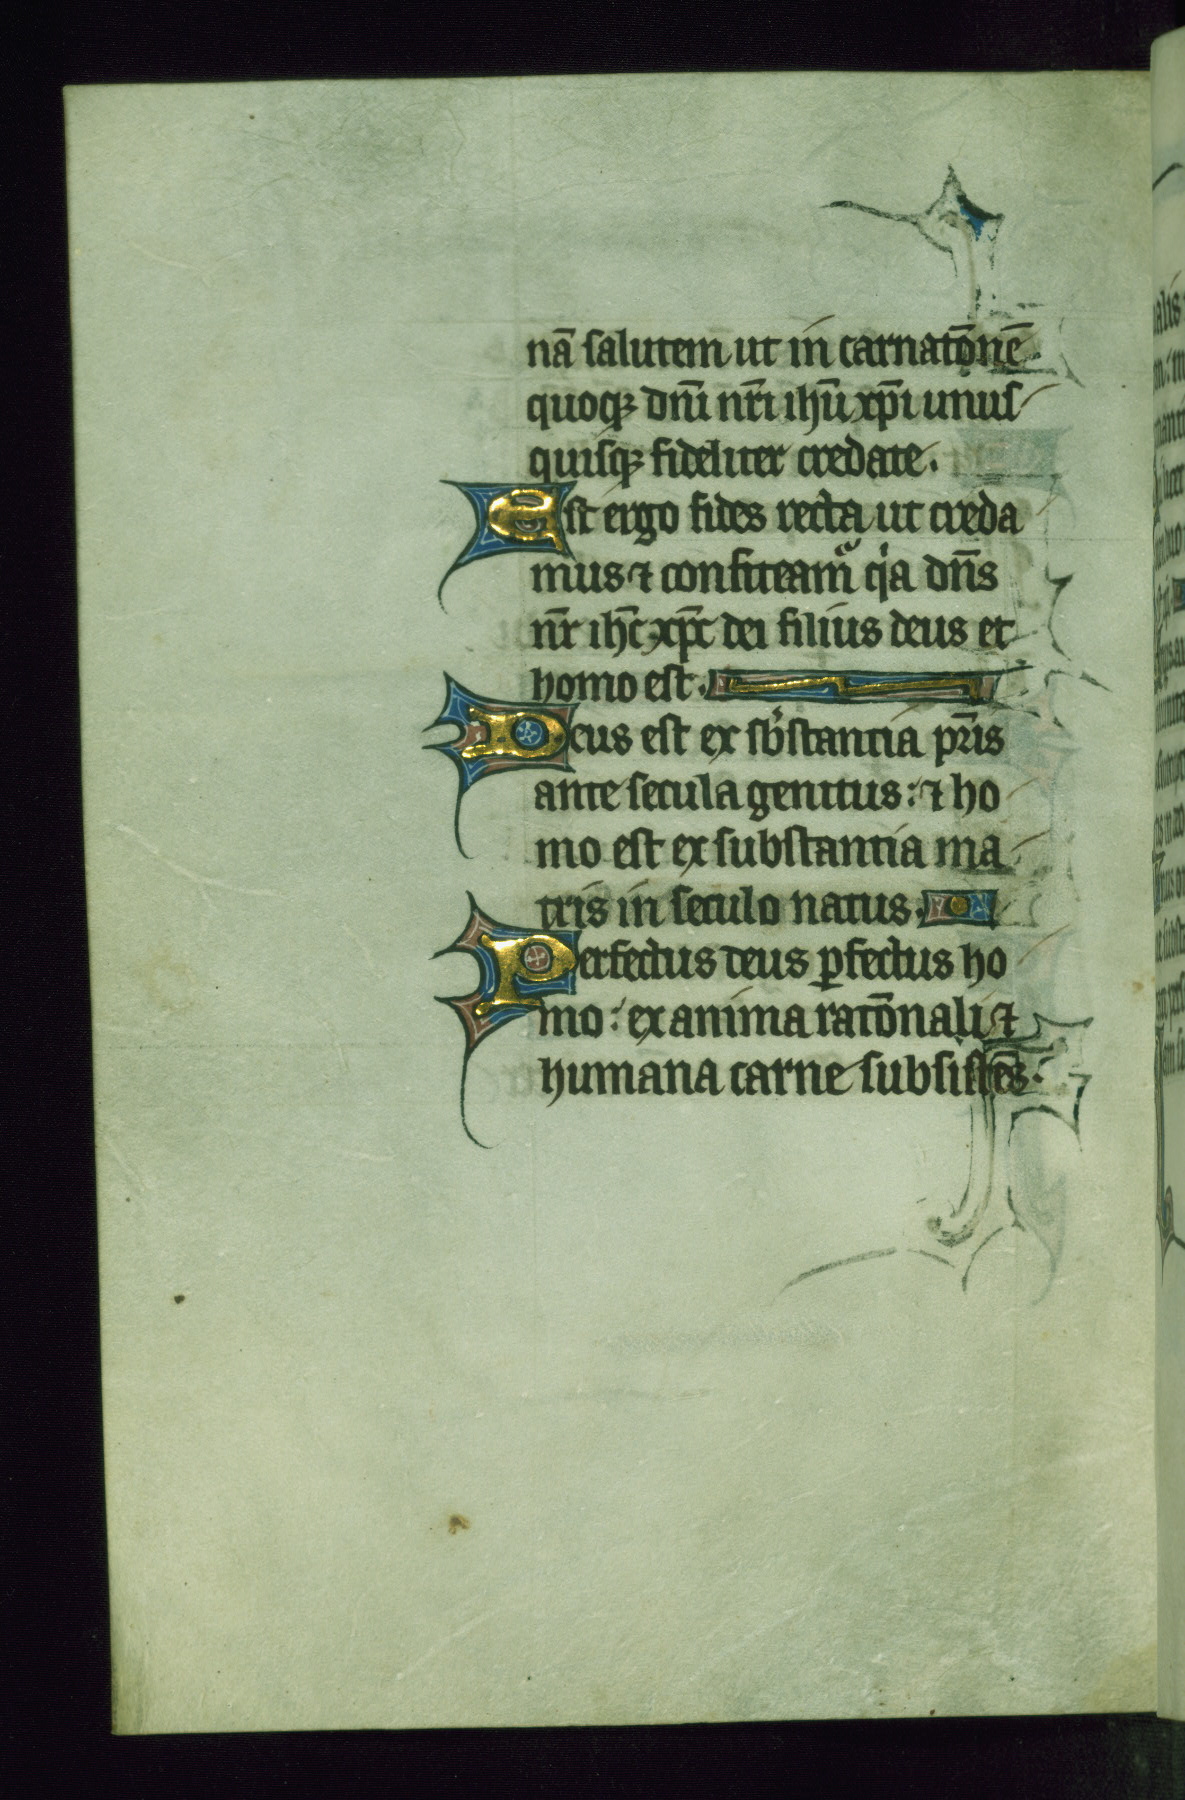 nā salutem ut in carnatōnē
quoqꝫ dn̄i nr̄i ihū xp̄i unus
quisqꝫ fideliter credate.
Est ergo fides recta ut creda
mus ⁊ confiteam᷑ qͥa dn̄s
nr̄ ihc̄ xp̄c dei filius deus et
homo est.
Deus est ex sb̾stantia pr̄is
ante secula genitus: ⁊ ho
mo est ex substantia ma
tris in seculo natus.
Perfectus deus ꝑfectus ho
mo: ex anima ratōnali ⁊
humana carne subsistēs.